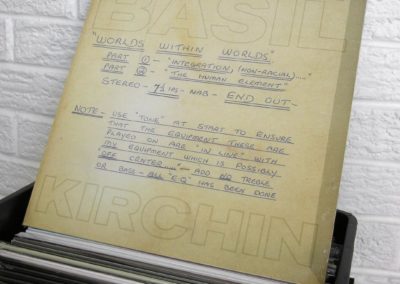 BASIL
"WORLDS WITHIN WORLDS"
PART ① - "INTEGRATION, (NON-RACIAL)...."
PART ② - "THE HUMAN ELEMENT"
STEREO - 7½ IPS - NAB - END OUT -
NOTE - USE "TONE" AT START TO ENSURE
THAT THE EQUIPMENT THESE ARE
PLAYED ON ARE "IN LINE" WITH
MY EQUIPMENT WHICH IS POSSIBLY
"OFF CENTER..... - ADD NO TREBLE
OR BASS - ALL "E.Q" HAS BEEN DONE
KIRCHIN